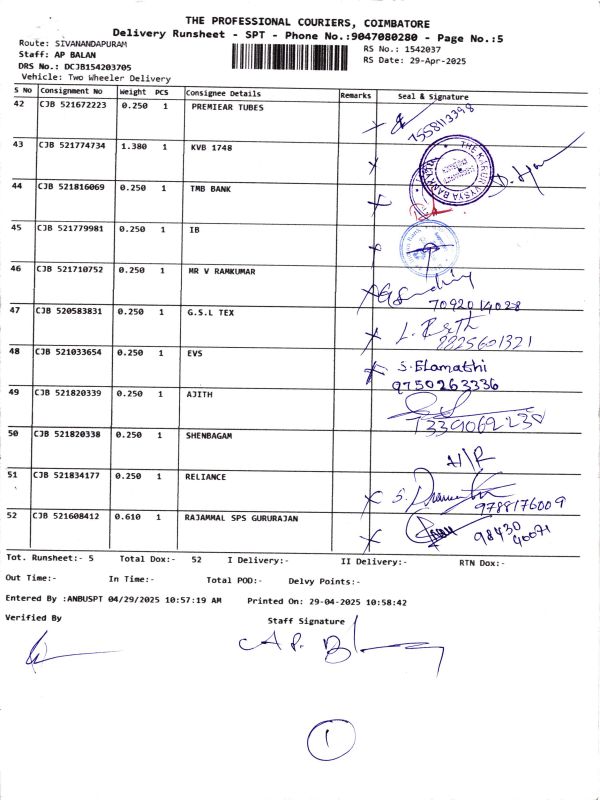 THE PROFESSIONAL COURIERS, COIMBATORE
Delivery Runsheet - SPT - Phone No.:9047080280 - Page No.:5
Route: SIVANANDAPURAM
RS No.: 1542037
Staff: AP BALAN
RS Date: 29-Apr-2025
DRS No.: DCJB154203705
Vehicle: Two Wheeler Delivery
S No Consignment No Weight PCS Consignee Details Remarks Seal & Signature
42 CJB 521672223 0.250 1 PREMIEAR TUBES
7558113398
43 CJB 521774734 1.380 1 KVB 1748
THE KARUR VYSYA BANK LTD
44 CJB 521816069 0.250 1 TMB BANK
45 CJB 521779981 0.250 1 IB
46 CJB 521710752 0.250 1 MR V RAMKUMAR
7092014028
47 CJB 520583831 0.250 1 G.S.L TEX
48 CJB 521033654 0.250 1 EVS
S. Elamathi
9750263336
49 CJB 521820339 0.250 1 AJITH
50 CJB 521820338 0.250 1 SHENBAGAM
51 CJB 521834177 0.250 1 RELIANCE
9788176009
52 CJB 521608412 0.610 1 RAJAMMAL SPS GURURAJAN
98430
40071
Tot. Runsheet:- 5 Total Dox:- 52 I Delivery:- II Delivery:- RTN Dox:-
Out Time:- In Time:- Total POD:- Delvy Points:-
Entered By :ANBUSPT 04/29/2025 10:57:19 AM Printed On: 29-04-2025 10:58:42
Verified By Staff Signature
A.P. B
1